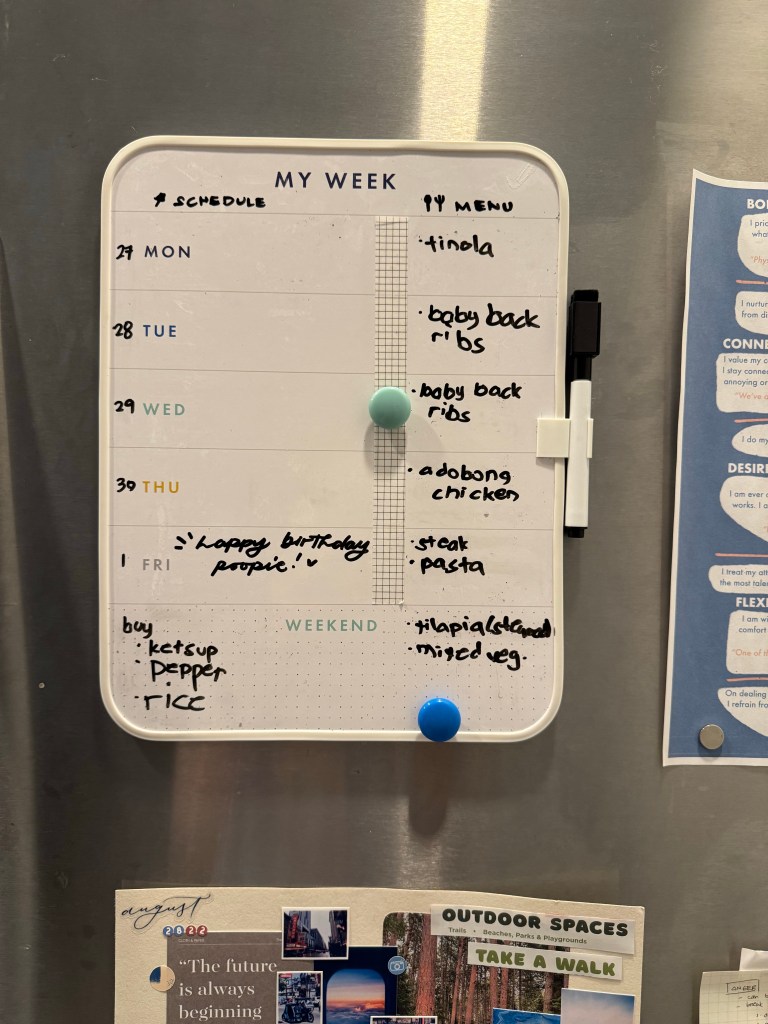 MY WEEK
SCHEDULE
MENU
27 MON
· tinola
28 TUE
· baby back
ribs
29 WED
· baby back
ribs
30 THU
· adobong
chicken
1 FRI
Happy birthday
poopie!
· steak
· pasta
WEEKEND
buy
· ketsup
· pepper
· rice
· tilapia (steamed)
· mixed veg.
BO
I pri
wha
"Phys
I nurtur
from di
CONNE
I value my c
I stay conne
annoying or
"We've a
I do my
DESIRE
I am ever
works. I a
I treat my att
the most talen
FLEXI
I am wi
comfort
"One of th
On dealing
I refrain fro
august
2022
OUTDOOR SPACES
Trails • Beaches, Parks & Playgrounds
TAKE A WALK
"The future
is always
beginning